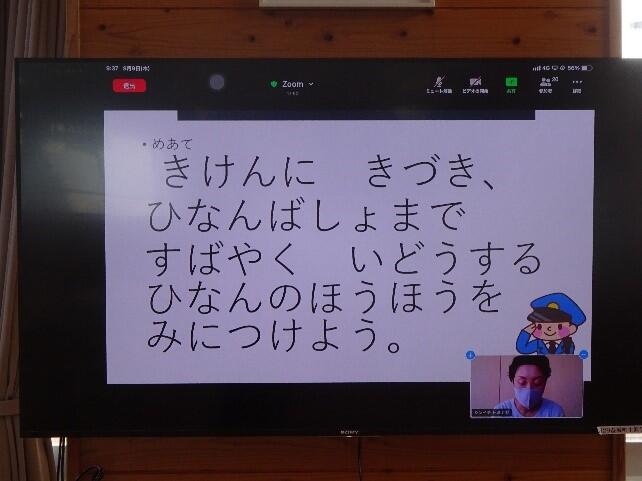 9:37 9月9日(木)
4G 56%
退出
Zoom
ミュート解除 ビデオの開始 共有 参加者 詳細
20
・めあて
きけんに きづき、
ひなんばしょまで
すばやく いどうする
ひなんのほうほうを
みにつけよう。
SONY